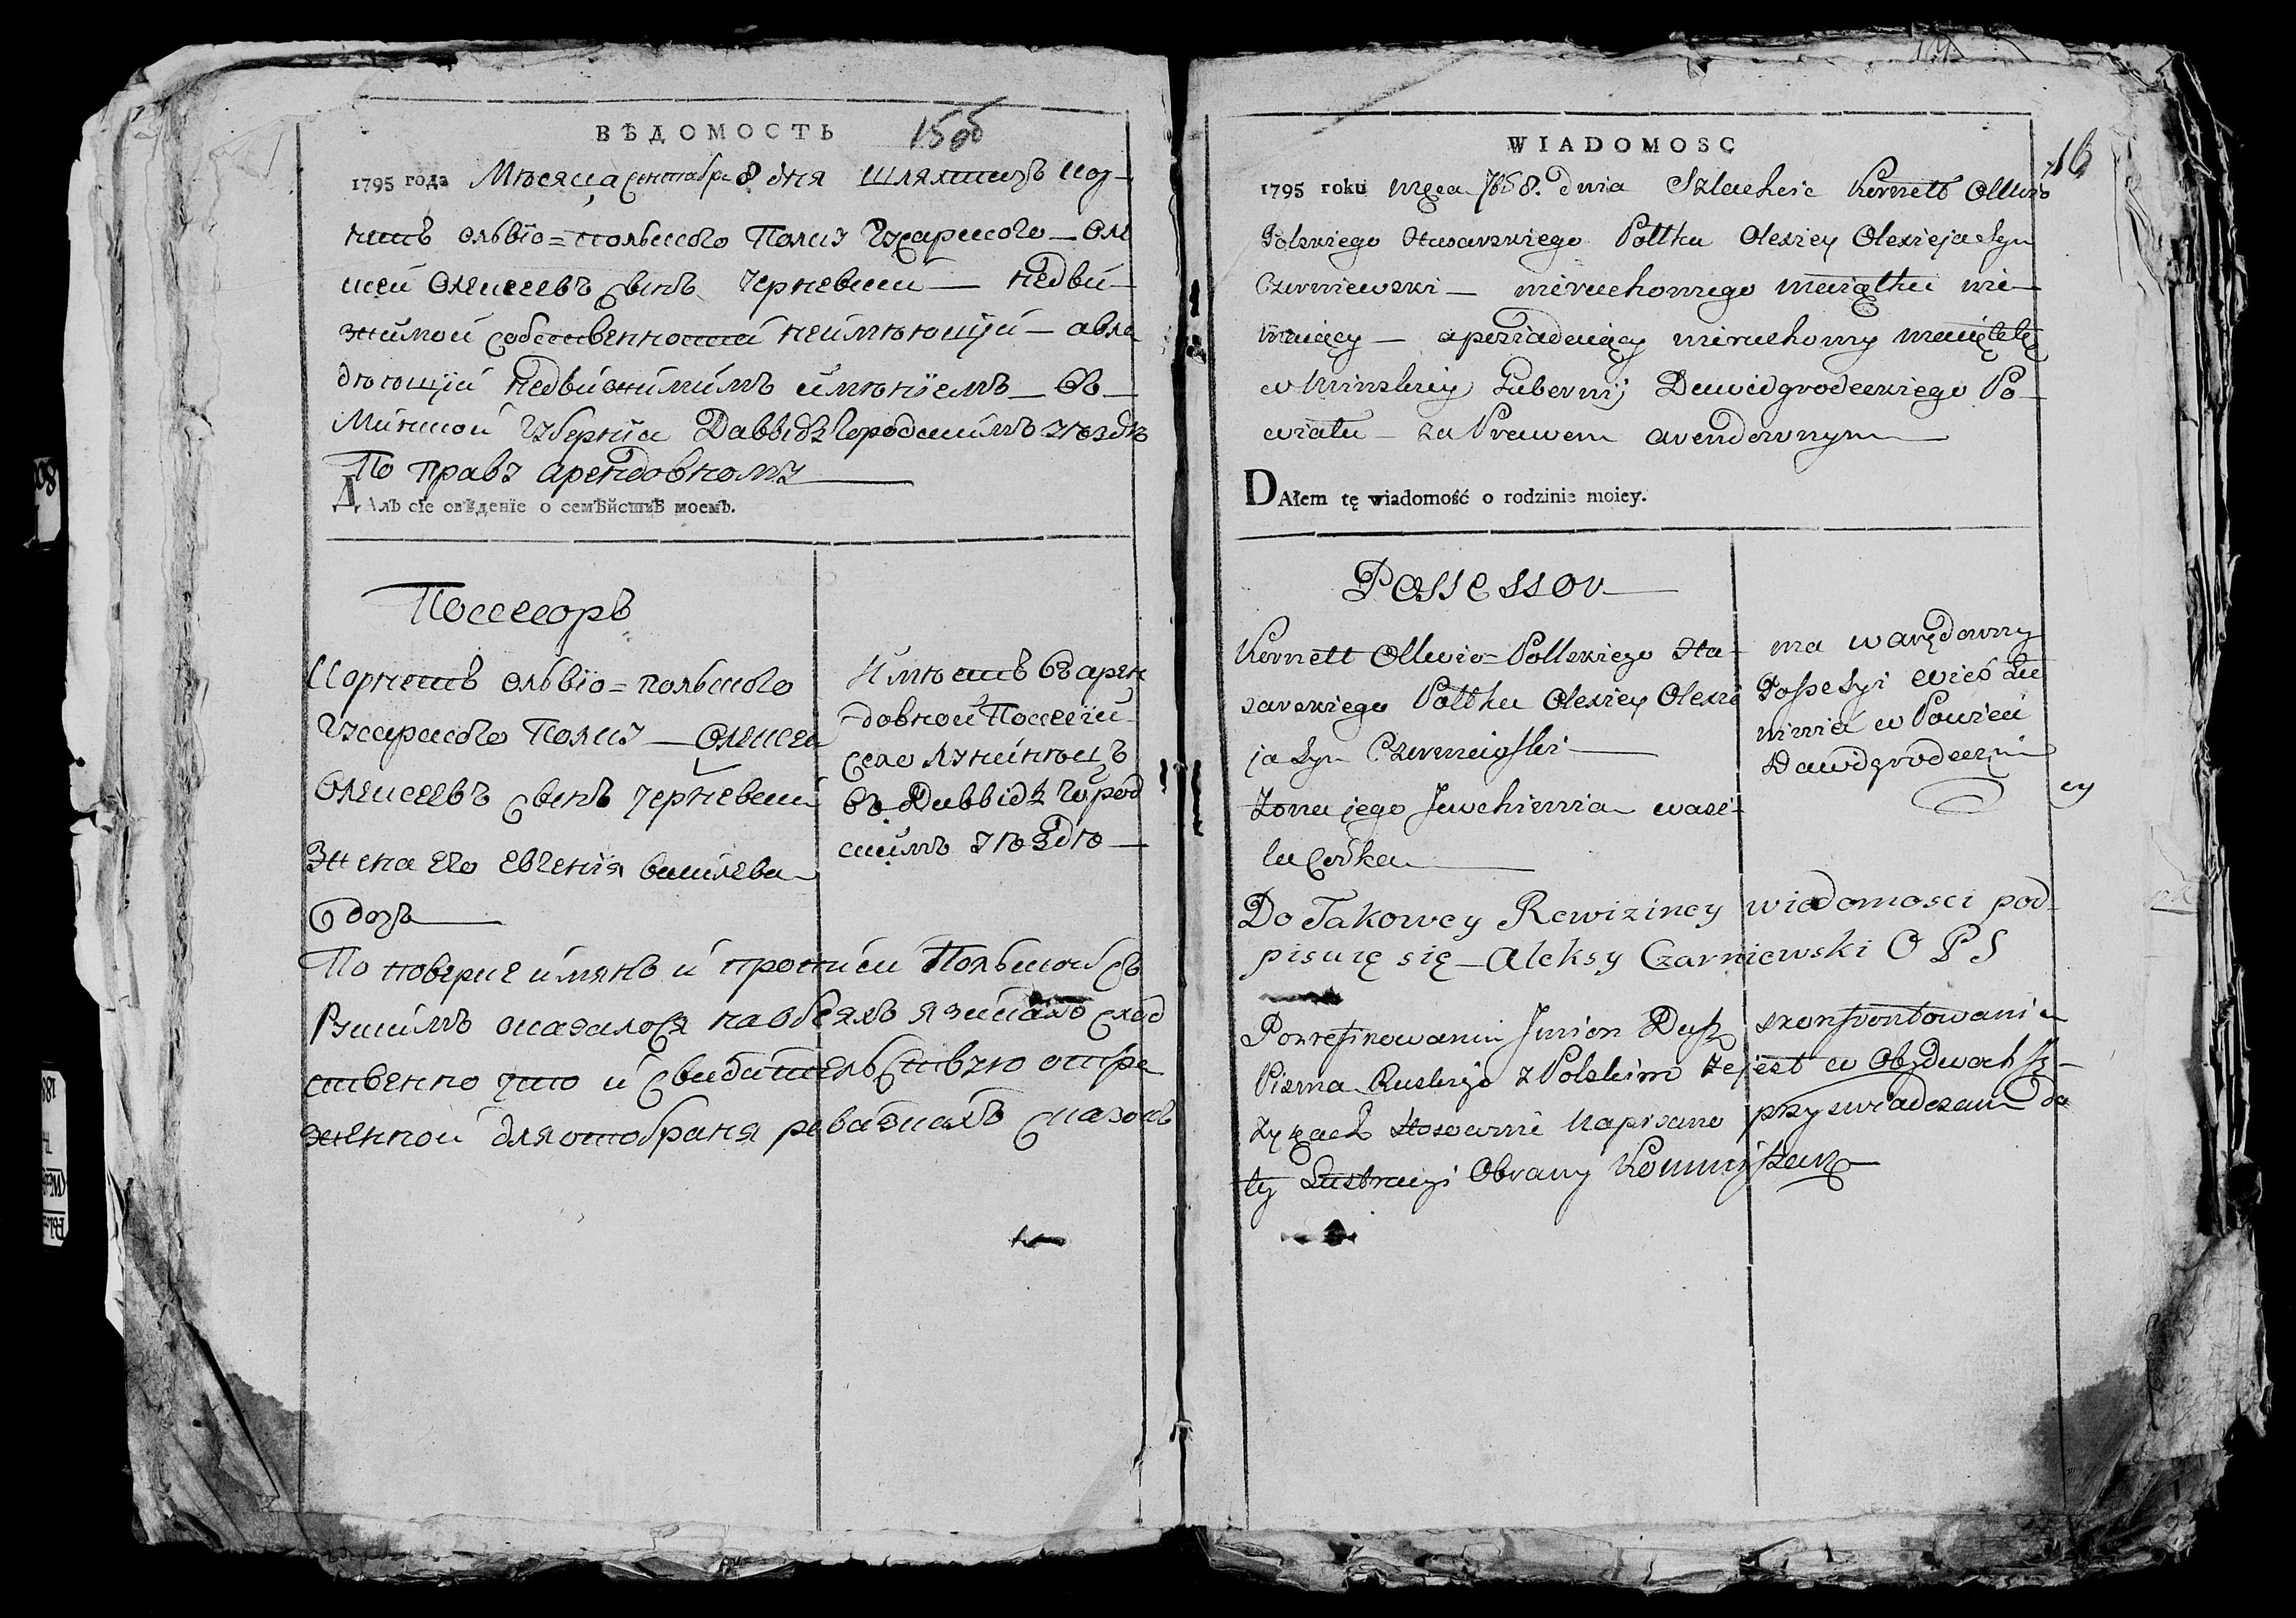 ВѢДОМОСТЬ
15об
1795 года Мѣсяца сентября 8 дня шляхтичъ кор-
нетъ ольвіо=польского Полку Гусарского — Оле
ксей Олексеевъ сынъ Черневски — недви-
жимой собственности неимѣющій — авла
дѣющій недвижимимъ имѣніемъ — въ
Минской Губерніи Давыдъ городскимъ уѣздѣ
По праву арендовному
ДАлъ сіе свѣденіе о семѣйствѣ моемъ.
Поссесоръ
Корнетъ ольвіо=польского
Гусарского Полку — Олексей
Олексеевъ сынъ Черневски
Жена его Евгенія василева
дочь
Имѣетъ въ арен
довной Поссесіи
село Лунинъ
въ Давыдъ город
скимъ уѣздѣ
По поверке имянъ и прописи Польской съ
Рускимъ оказалося наобеихъ языкахъ сход
ственно что и свидѣтельствую отре
женной для отобраня ревизкихъ сказокъ
WIADOMOSC
16
1795 roku mca 7b 8. dnia Szlachcic Kornett Ollwio
Polskiego Husarskiego Połłku Olexiey Olexieja Syn
Czerniewski — nieruchomego maiątku nie
maiący — apoziadaiący nieruchomy maiątek
w Minskiey Gubernij Dawidgrodeckiego Po-
wiatu — za Prawem arendownym
DAłem tę wiadomość o rodzinie moiey.
Possessor
Kornett Ollwio=Pollskiego Hu-
sarskiego Połłku Olexiey Olexie
ja Syn Czerniewski
Zona jego Jewhienia wasi-
la Corka
ma w arędowny
Possesyi wieś Łu
ninie w Powieci
Dawidgrodeckim
cy
Do Takowey Rewiziney wiadomosci pod-
pisuię się — Aleksy Czarniewski O P S
Po zrefirowaniu Jmion Dusz skonfrontowaniu
Pisma Ruskiego z Polskim ze jest w Obydwoch Ję-
zykach Stosownie napisano przyswiadczam do
ty Lustracyi Obrany Kommissarz